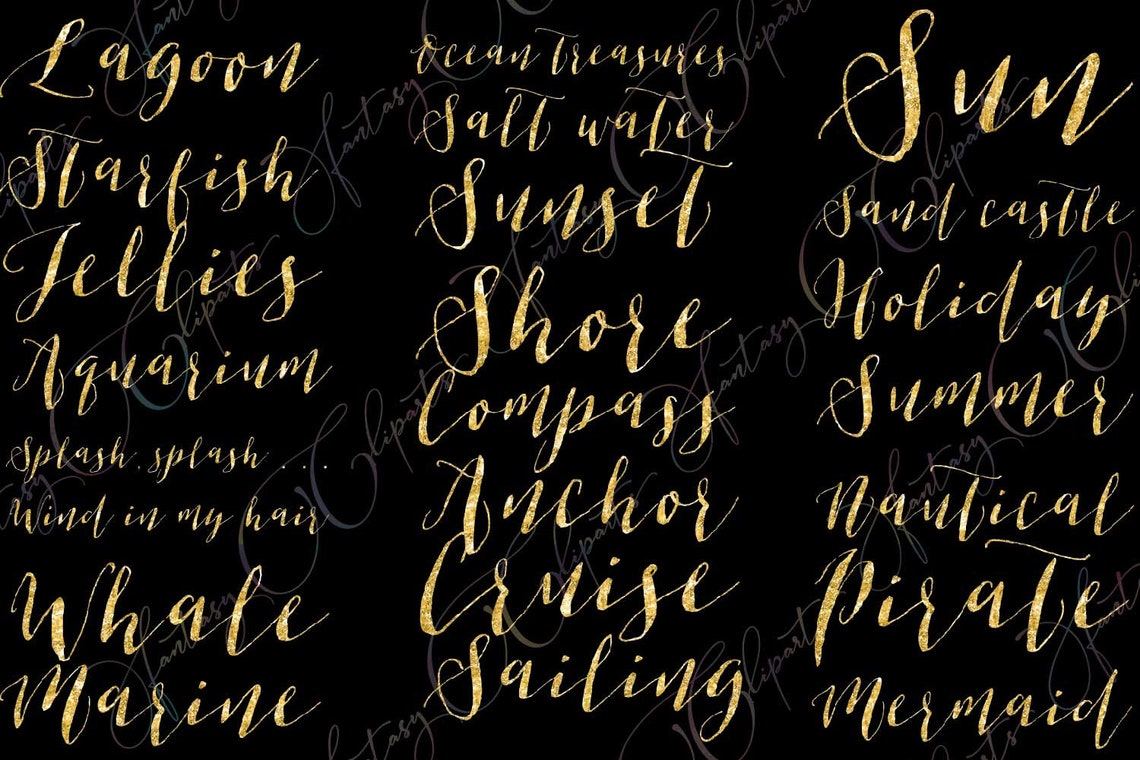 Lagoon
Starfish
Jellies
Aquarium
Splash, splash ....
Wind in my hair
Whale
Marine
Ocean Treasures
Salt water
Sunset
Shore
Compass
Anchor
Cruise
Sailing
Sun
Sand castle
Holiday
Summer
Nautical
Pirate
Mermaid
Fantasy Cliparts